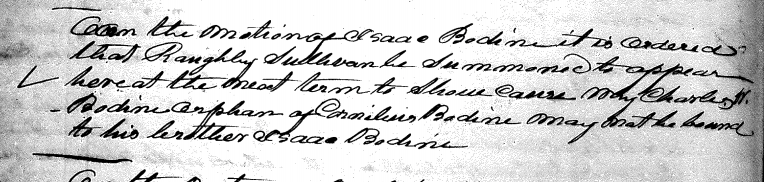 On the motion of Isaac Bodine it is ordered
that Raughly Sullivan be Summoned to appear
here at the next term to Shew Cause why Charles H.
Bodine orphan of Cornilius Bodine may not be bound
to his brother Isaac Bodine
On the